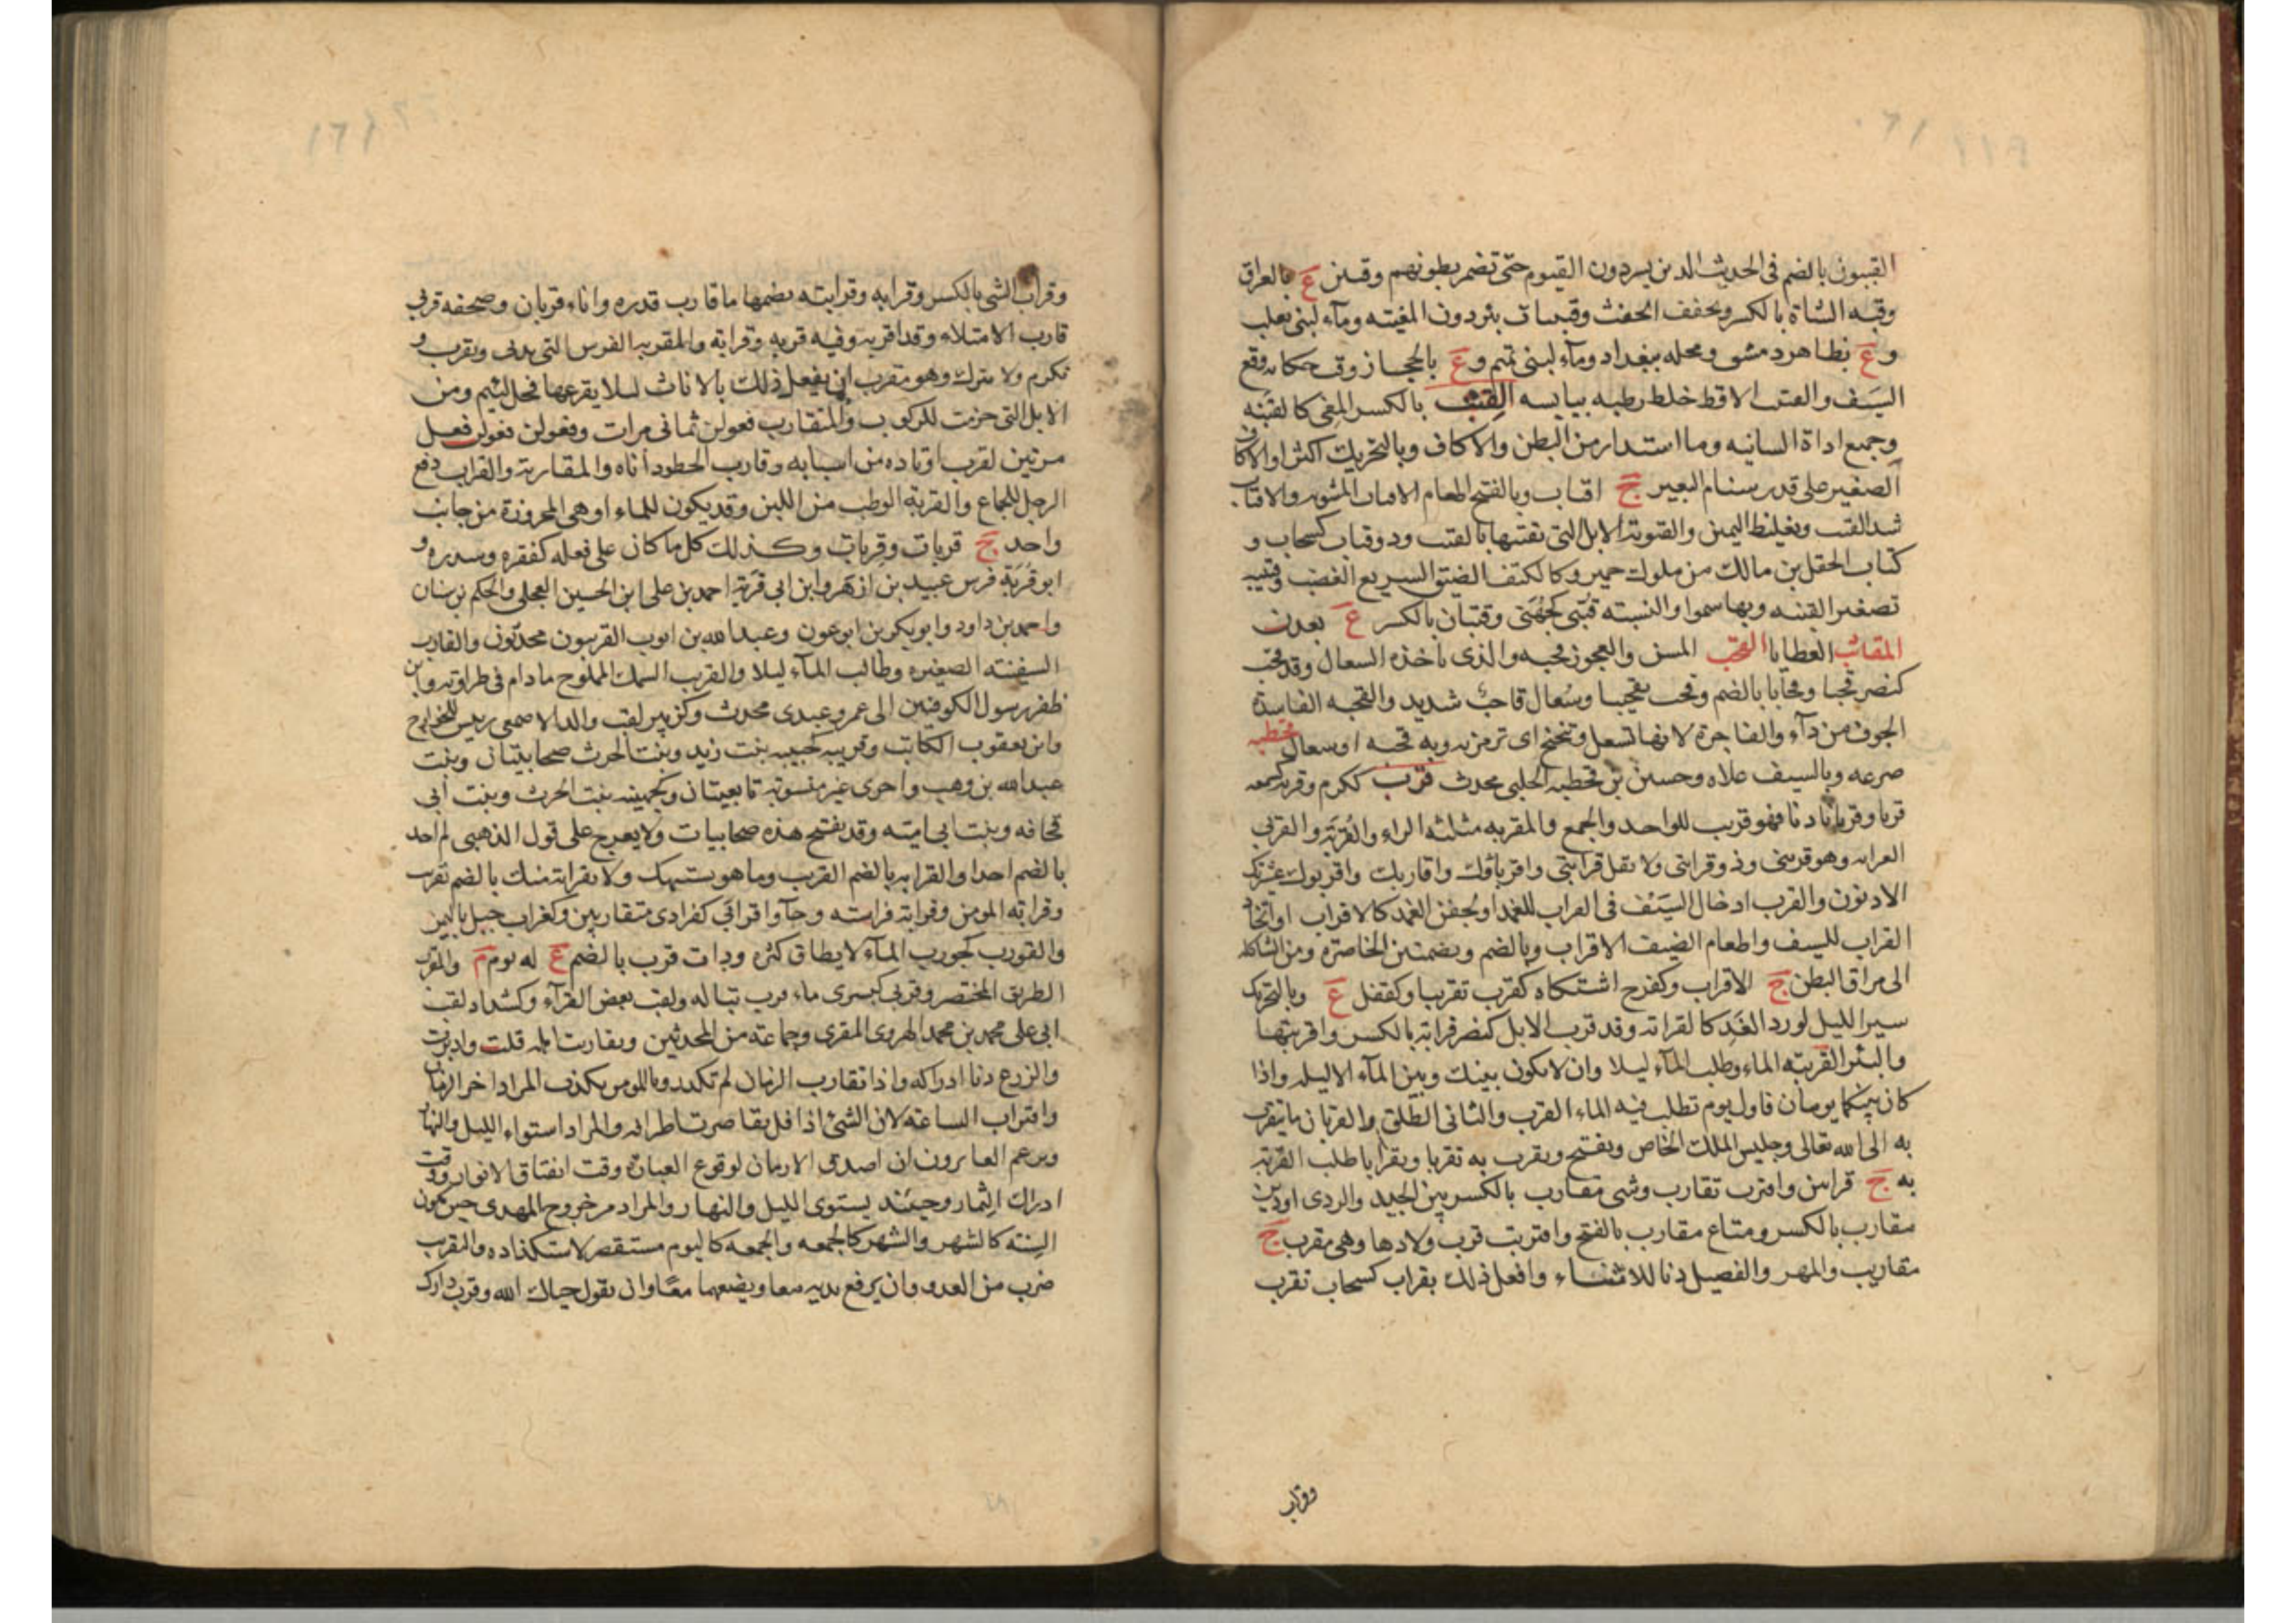 القببون بالضم فى الحديث الذين يسردون القيوم حتى تضمر بطونهم وقبين ع بالعراق
وقبه الشاة بالكسر وتخفف الحفث وقبيبات بئر دون المغيثه ومآء لبنى تغلب
وع بظاهر دمشق ومحله ببغداد ومآء لبنى تميم وع بالحجاز وقب حكايه وقع
السيف والقتب الاقط خلط رطبه بيابسه القتب بالكسر المعى كالقتبه
وجميع اداة السانيه وما استدار من البطن والاكاف وبالتحريك اكثر او الاكاف
الصغير على قدر سنام البعير ج اقتاب وبالفتح اطعام الاقتاب المشويه والاقتاب
شد القتب وتغليظ اليمين والقتوبة الابل التى تقتبها بالقتب وذو قتاب كسحاب و
كتاب الحقل بن مالك من ملوك حمير وككتف الضيق السريع الغضب وقتيبه
تصغير القتبه وبها سموا والنسبته قتبى كجهنى وقتبان بالكسر ع بعدن
المقاثب العطايا القحب المسن والعجوز قحبه والذى ياخذه السعال وقد قحب
كنصر قحبا وقحابا بالضم وقحب تقحيبا وسعال قاحب شديد والقحبه الفاسدة
الجوف من دآء والفاجرة لانها تسعل وتنحنح اى ترمز به وبه قحبه اوسعال قحطبه
صرعه وبالسيف علاه وحسين بن قحطبه الحلبى محدث قرب ككرم وقربه كسمعه
قربا وقربانا دنا فهو قريب للواحد والجمع والمقربه مثلثه الراء والقربة والقربى
القرابه وهو قريبى وذو قرابتى ولا تقل قرابتى واقرباؤك واقاربك واقربوك عشيرتك
الادنون والقرب ادخال السيف فى القراب للغمد او لجفن الغمد كالاقراب او اتخاذ
القراب للسيف واطعام الضيف الاقراب وبالضم وبضمتين الخاصرة ومن الشاكله
الى مراق البطن ج الاقراب وكفرح اشتكاه كقرب تقريبا وكقفل ع وبالتحريك
سير الليل لورد الغد كالقرابه وقد قرب الابل كنصر قرابة بالكسر واقربتها
والبئر القريبته الماء وطلب المآء ليلا وان لا يكون بينك وبين المآء الا ليله واذا
كان بينكما يومان فاول يوم تطلب فيه الماء القرب والثانى الطلق والقربان ما يتقرب
به الى الله تعالى وجليس الملك الخاص ويفتح وتقرب به تقربا وتقرابا طلب القربة
به ج قرابين واقترب تقارب وشى مقارب بالكسر بين الجيد والردى او دين
مقارب بالكسر ومتاع مقارب بالفتح واقتربت قرب ولادها وهى مقرب ج
مقاريب والمهر والفصيل دنا للاثناء وافعل ذلك بقراب كسحاب تقرب
وقراب
وقراب الشى بالكسر وقرابه وقرابته بضمها ما قارب قدره واناء قربان وصحفه قربى
قارب الامتلاء وقد اقربه وفيه قربه وقرابة والمقربه الفرس التى تدنى وتقرب و
تكرم ولا تترك وهو مقرب ان يفعل ذلك بالاناث لئلا يقرعها فحل لئيم ومن
الابل التى حزمت للركوب والمتقارب فعولن ثمانى مرات وفعولن فعولن فعل
مرتين لقرب اوتاده من اسبابه وقارب الخطو داناه والمقاربة والقراب رفع
الرجل للجماع والقربة الوطب من اللبن وقد يكون للماء او هى المخروزة من جانب
واحد ج قربات وقربات وكذلك كل ما كان على فعله كفقره وسدره و
ابو قربة فرس عبيد بن ازهر وابن ابى قربة احمد بن على ابن الحسين العجلى والحكم بن سنان
واحمد بن داود وابو بكر بن ابى عون وعبد الله بن ايوب القربيون محدثون والقارب
السفينته الصغيره وطالب المآء ليلا والقريب السمك المملوح مادام فى طراوته وابن
ظفر رسول الكوفيين الى عمر وعبدى محدث وكزبير لقب والد الاصمعى رئيس للخوارج
وابن يعقوب الكاتب وقريبه كحبيبه بنت زيد وبنت الحرث صحابيتان وبنت
عبد الله بن وهب واخرى غير منسوبة تابعيتان وكجهينه بنت الحرث وبنت ابى
قحافه وبنت ابى اميته وقد يفتح هذه صحابيات ولا يعرج على قول الذهبى لم اجد
بالضم احدا والقرابه بالضم القريب وما هو بشبهك ولا بقرابة منك بالضم بقريب
وقرابة المومن وقرابته فراسته وجآوا قرابى كفرادى متقاربين وكغراب جبل باليمن
والقورب كجورب المآء لا يطاق كثره وذات قرب بالضم ع له يوم م والمقرب
الطريق المختصر وقربى كبسرى ماء قرب تباله ولقب بعض القرآء وكشداد لقب
ابى على محمد بن محمد الهروى المقرى وجماعته من المحدثين وتقاربت ابله قلت وادبرت
والزرع دنا ادراكه واذا تقارب الزمان لم تكد رويا المومن تكذب المراد اخر الزمان
واقتراب الساعته لان الشئ اذا قل تقاصرت اطرافه والمراد استواء الليل والنهار
ويزعم العابرون ان اصدق الازمان لوقوع العبارة وقت انفتاق الانوار ووقت
ادراك الثمار وحينئذ يستوى الليل والنهار والمراد من خروج المهدى حين تكون
السنته كالشهر والشهر كالجمعه والجمعه كاليوم مستقصر لاستلذاذه والتقريب
ضرب من العدو وان يرفع يديه معا ويضعهما معا وان يقول حياك الله وقرب دارك